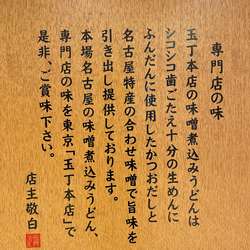 専門店の味
玉丁本店の味噌煮込みうどんは
シコシコ歯ごたえ十分の生めんに
ふんだんに使用したかつおだしと
名古屋特産の合わせ味噌で旨味を
引き出し提供しております。
本場名古屋の味噌煮込みうどん、
専門店の味を東京「玉丁本店」で
是非、ご賞味下さい。
店主敬白